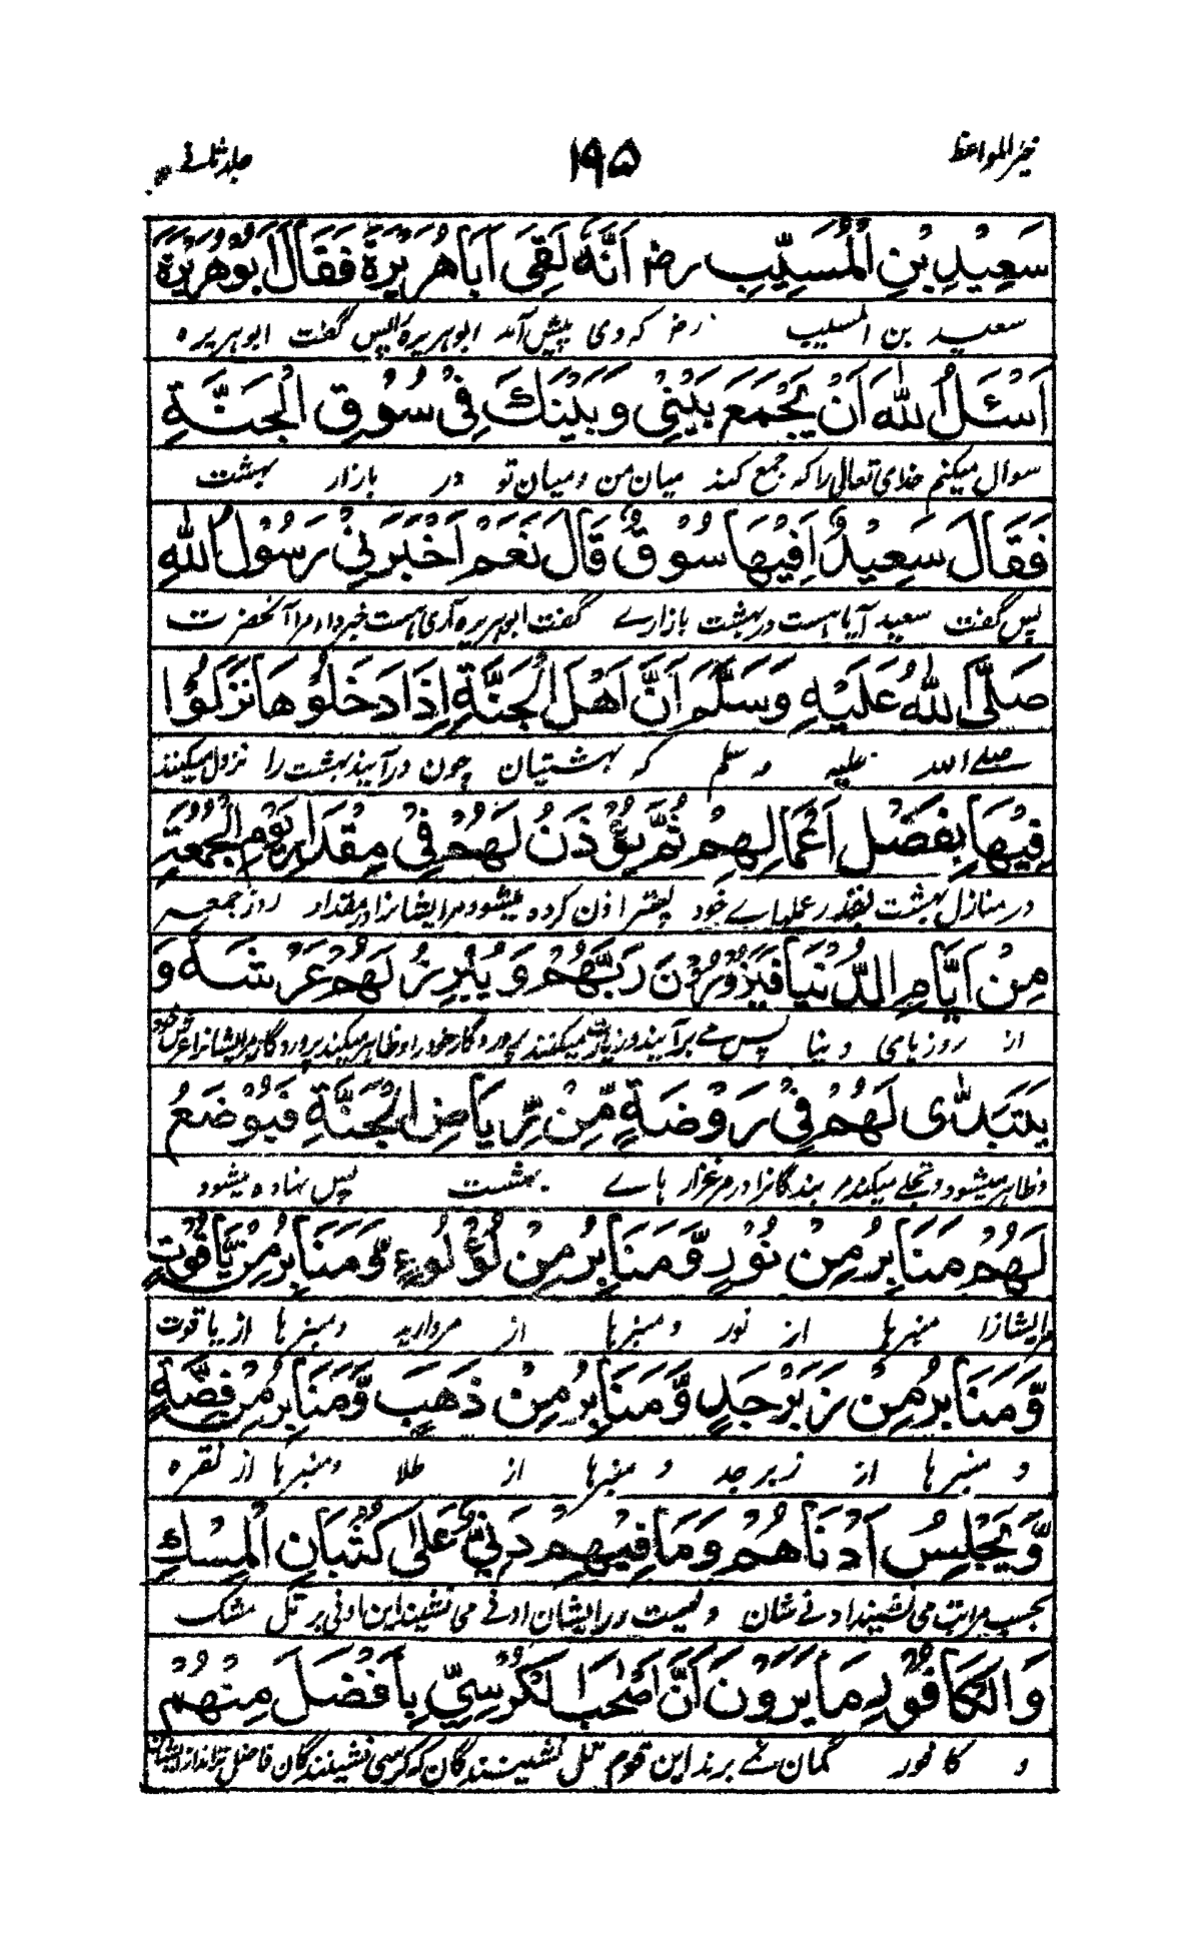 خیر المواعظ
۱۹۵
جلد ثانے
سَعِيْدِ بْنِ الْمُسَيِّبِ رض اَنَّهٗ لَقِيَ اَبَا هُرَيْرَةَ فَقَالَ اَبُوْهُرَيْرَةَ
سعید بن المسیب رض که وی پیش آمد ابو هریره را پس گفت ابو هریره
اَسْئَلُ اللهَ اَنْ يَّجْمَعَ بَيْنِيْ وَبَيْنَكَ فِيْ سُوْقِ الْجَنَّةِ
سوال میکنم خدای تعالی را که جمع کند میان من و میان تو در بازار بهشت
فَقَالَ سَعِيْدٌ اَفِيْهَا سُوْقٌ قَالَ نَعَمْ اَخْبَرَنِيْ رَسُوْلُ اللهِ
پس گفت سعید آیا هست در بهشت بازارے گفت ابو هریره آری هست خبر داد مرا آنحضرت
صَلَّى اللهُ عَلَيْهِ وَسَلَّمَ اَنَّ اَهْلَ الْجَنَّةِ اِذَا دَخَلُوْهَا نَزَلُوْا
صلے الله علیه وسلم که بهشتیان چون در آیند بهشت را نزول میکنند
فِيْهَا بِفَضْلِ اَعْمَالِهِمْ ثُمَّ يُؤْذَنُ لَهُمْ فِيْ مِقْدَارِ يَوْمِ الْجُمُعَةِ
در منازل بهشت بقدر عملهاے خود پستر اذن کرده میشود مر ایشانرا در مقدار روز جمعه
مِنْ اَيَّامِ الدُّنْيَا فَيَزُوْرُوْنَ رَبَّهُمْ وَيُبْرِزُ لَهُمْ عَرْشَهٗ وَ
از روزهای دنیا پس مے برآیند و زیارت میکنند پروردگار خود را و ظاهر میکند پروردگار مر ایشانرا عرش خود
يَتَبَدّٰى لَهُمْ فِيْ رَوْضَةٍ مِّنْ رِّيَاضِ الْجَنَّةِ فَيُوْضَعُ
و ظاهر میشود و تجلے میکند مر بندگانرا در مرغزار هاے بهشت پس نهاده میشود
لَهُمْ مَنَابِرُ مِنْ نُوْرٍ وَّمَنَابِرُ مِنْ لُؤْلُوءٍ وَّمَنَابِرُ مِنْ يَّاقُوْتٍ
مر ایشانرا منبرها از نور و منبرها از مروارید و منبرها از یاقوت
وَّمَنَابِرُ مِنْ زَبَرْجَدٍ وَّمَنَابِرُ مِنْ ذَهَبٍ وَّمَنَابِرُ مِنْ فِضَّةٍ
و منبرها از زبرجد و منبرها از طلا و منبرها از نقره
وَّيَجْلِسُ اَدْنَاهُمْ وَمَا فِيْهِمْ دَنِيٌّ عَلٰى كُثْبَانِ الْمِسْكِ
بحسب مراتب می نشیند ادنے شان و نیست در ایشان ادنے می نشیند این ادنی بر تل مشک
وَالْكَافُوْرِ مَا يَرَوْنَ اَنَّ اَصْحٰبَ الْكُرْسِيِّ بِاَفْضَلَ مِنْهُمْ
و کافور گمان نمے برند این قوم تل نشینندگان که کرسی نشینندگان فاضل تر اند از ایشان